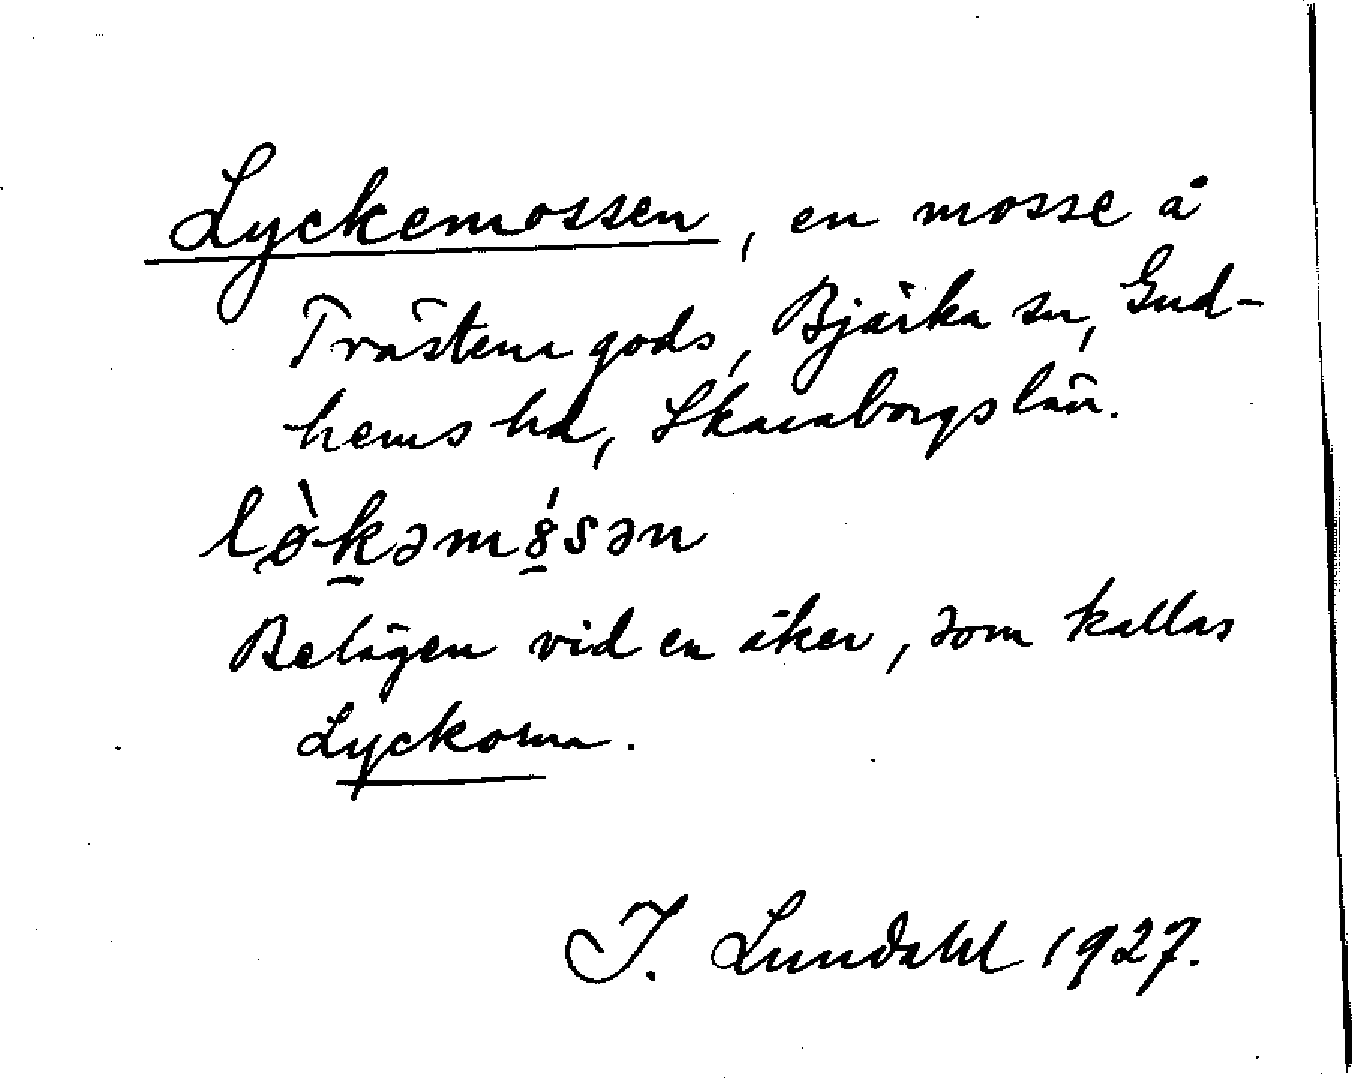 Lyckemossen, en mosse å
Trästena gods, Bjärka sn, Gud-
hems hd, Skaraborgs län.
lø̀kəm8́sən
Belägen vid en åker, som kallas
Lyckorna.
I. Lundahl 1927.